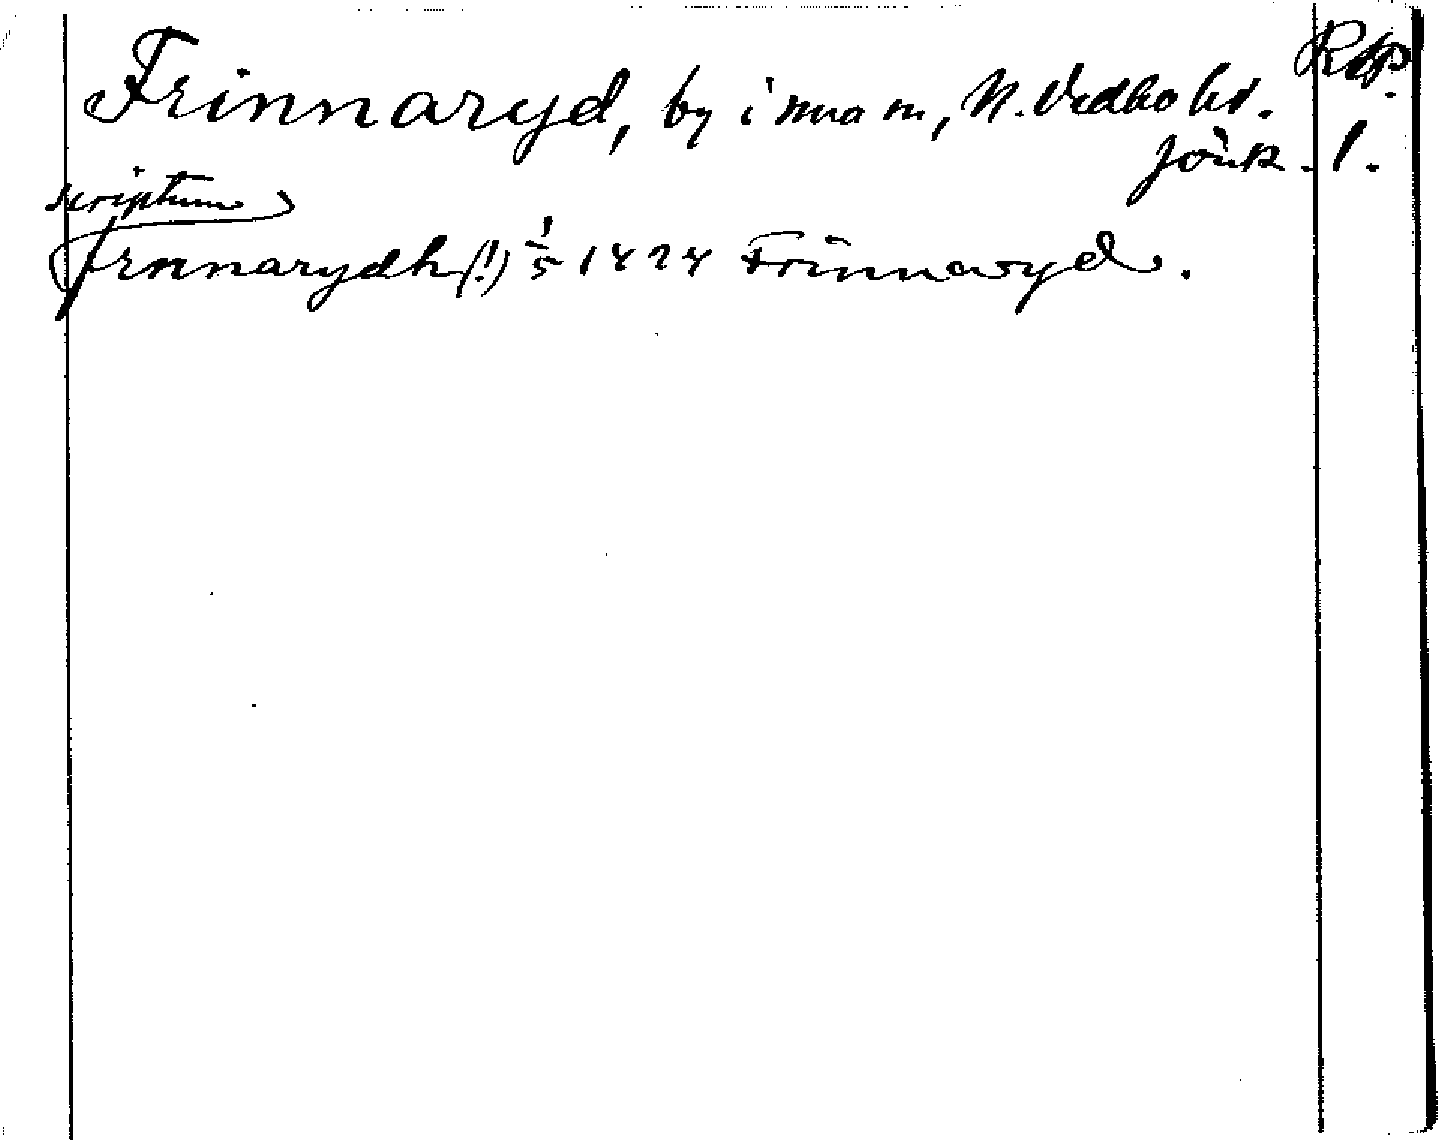 Frinnaryd, by i sna m, N. Vedbo hd. Rsp.
Jönk. l.
scriptum
Frnnarydh(!) 1/5 1424 Frinnaryd.